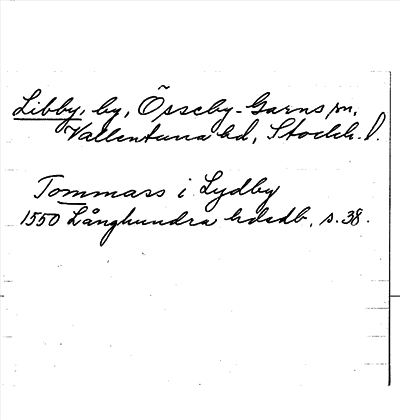 Libby, by, Össeby-Garns sn,
Vallentuna hd, Stockh. l.
Tommass i Lydby
1550 Långhundra hdsdb, s. 38.